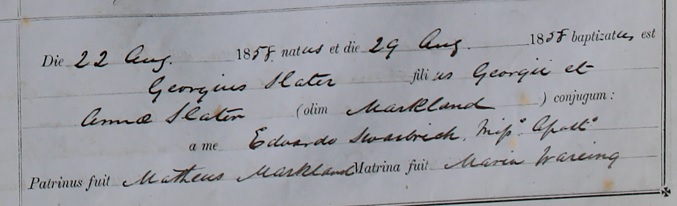 Die 22 Aug. 1858. natus et die 29 Aug. 1858 baptizatus est
Georgius Slater filius Georgii et
Annæ Slater (olim Markland) conjugum:
a me Edvardo Swarbrick, Missº. Apostº
Patrinus fuit Matheus Markland Matrina fuit Maria Wareing